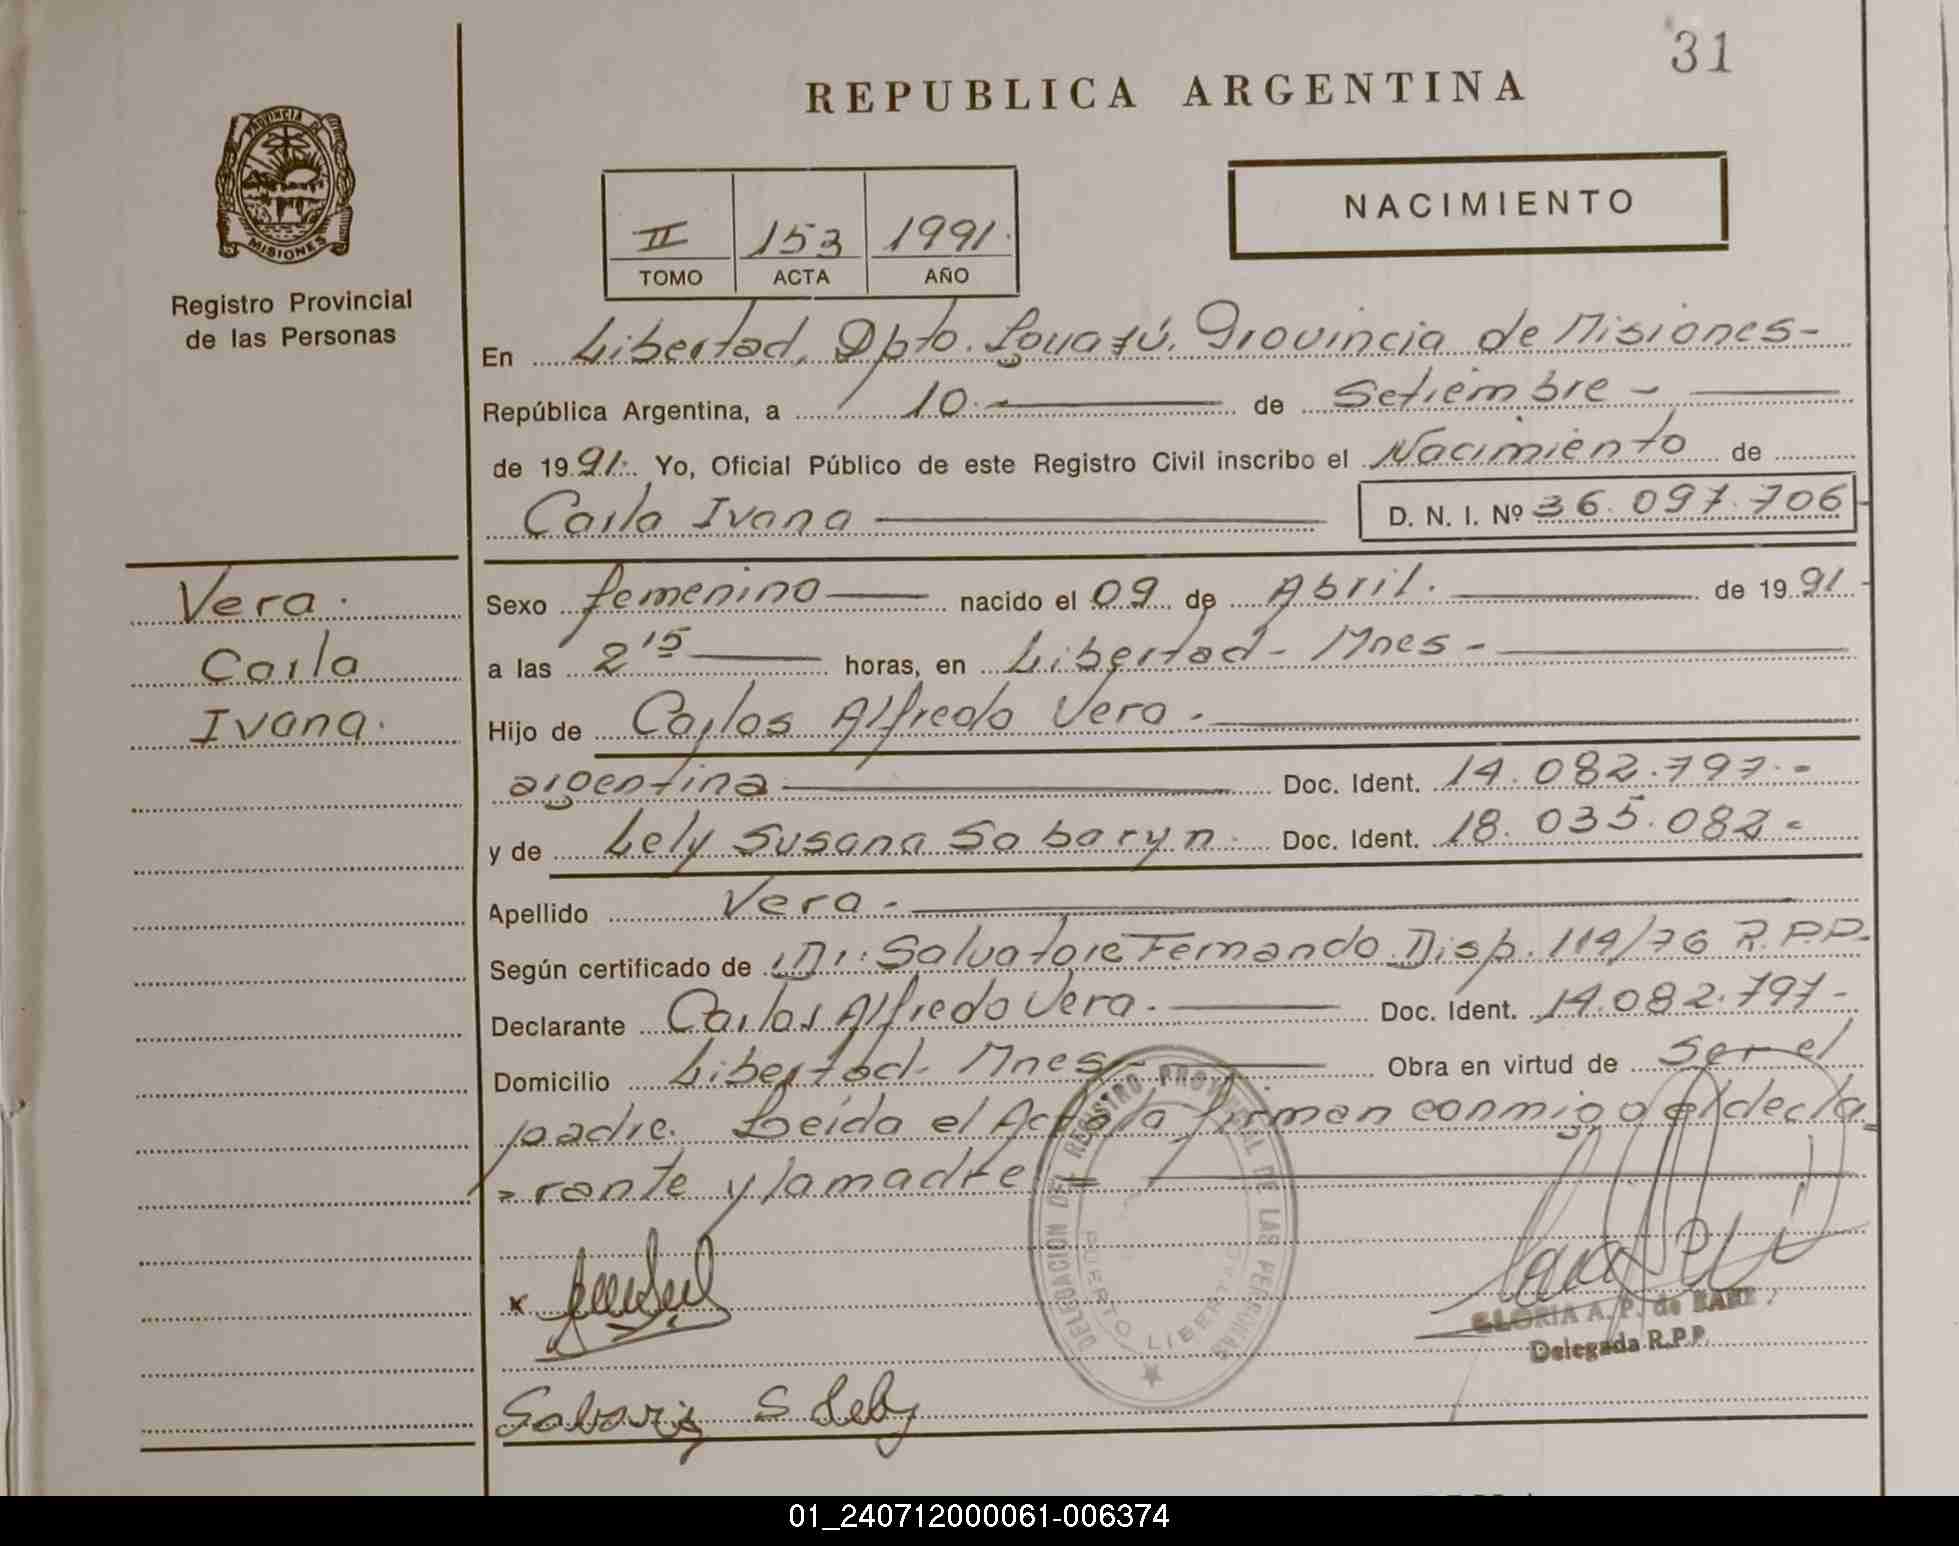 31
REPUBLICA ARGENTINA
PROVINCIA DE
MISIONES
Registro Provincial
de las Personas
II 153 1991.
TOMO ACTA AÑO
NACIMIENTO
En Libertad, Dpto. Iguazú. Provincia de Misiones-
República Argentina, a 10.- de Setiembre -
de 1991.. Yo, Oficial Público de este Registro Civil inscribo el Nacimiento de
Carla Ivana D. N. I. Nº 36.097.706
Vera.
Carla
Ivana.
Sexo femenino nacido el 09 de Abril. de 1991-
a las 2 15 horas, en Libertad- Mnes -
Hijo de Carlos Alfredo Vera.-
argentina Doc. Ident. 14.082.797.-
y de Lely Susana Sabaryn. Doc. Ident. 18.035.082-
Apellido Vera.-
Según certificado de Dr: Salvatore Fernando Disp. 114/76 R.P.P.
Declarante Carlos Alfredo Vera. Doc. Ident. 14.082.797-
Domicilio Libertad- Mnes- Obra en virtud de Ser el
padre. Leída el Acta la firman conmigo el decla
=rante y la madre =
DELEGACION DEL REGISTRO PROVINCIAL DE LAS PERSONAS
PUERTO LIBERTAD
x
GLORIA A. P. de
Delegada R.P.P.
S Lely
01_240712000061-006374